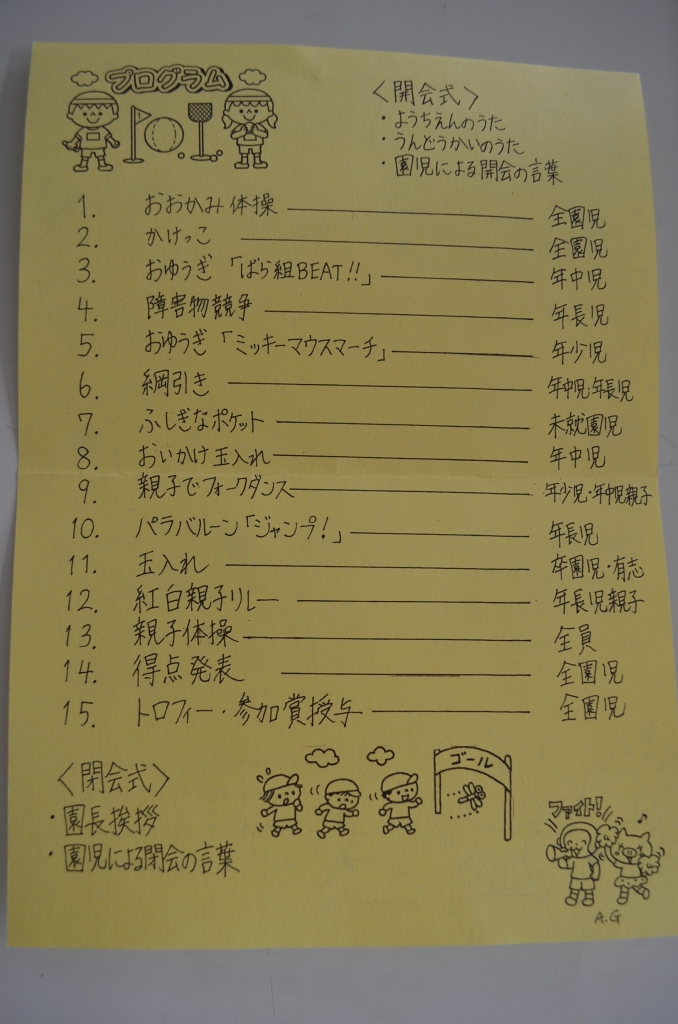 プログラム
〈開会式〉
・ようちえんのうた
・うんどうかいのうた
・園児による開会の言葉
1. おおかみ体操 全園児
2. かけっこ 全園児
3. おゆうぎ「ばら組BEAT!!」 年中児
4. 障害物競争 年長児
5. おゆうぎ「ミッキーマウスマーチ」 年少児
6. 綱引き 年中児・年長児
7. ふしぎなポケット 未就園児
8. おいかけ玉入れ 年中児
9. 親子でフォークダンス 年少児・年中児親子
10. パラバルーン「ジャンプ!」 年長児
11. 玉入れ 卒園児・有志
12. 紅白親子リレー 年長児親子
13. 親子体操 全員
14. 得点発表 全園児
15. トロフィー・参加賞授与 全園児
〈閉会式〉
・園長挨拶
・園児による閉会の言葉
ゴール
ファイト!
A.G